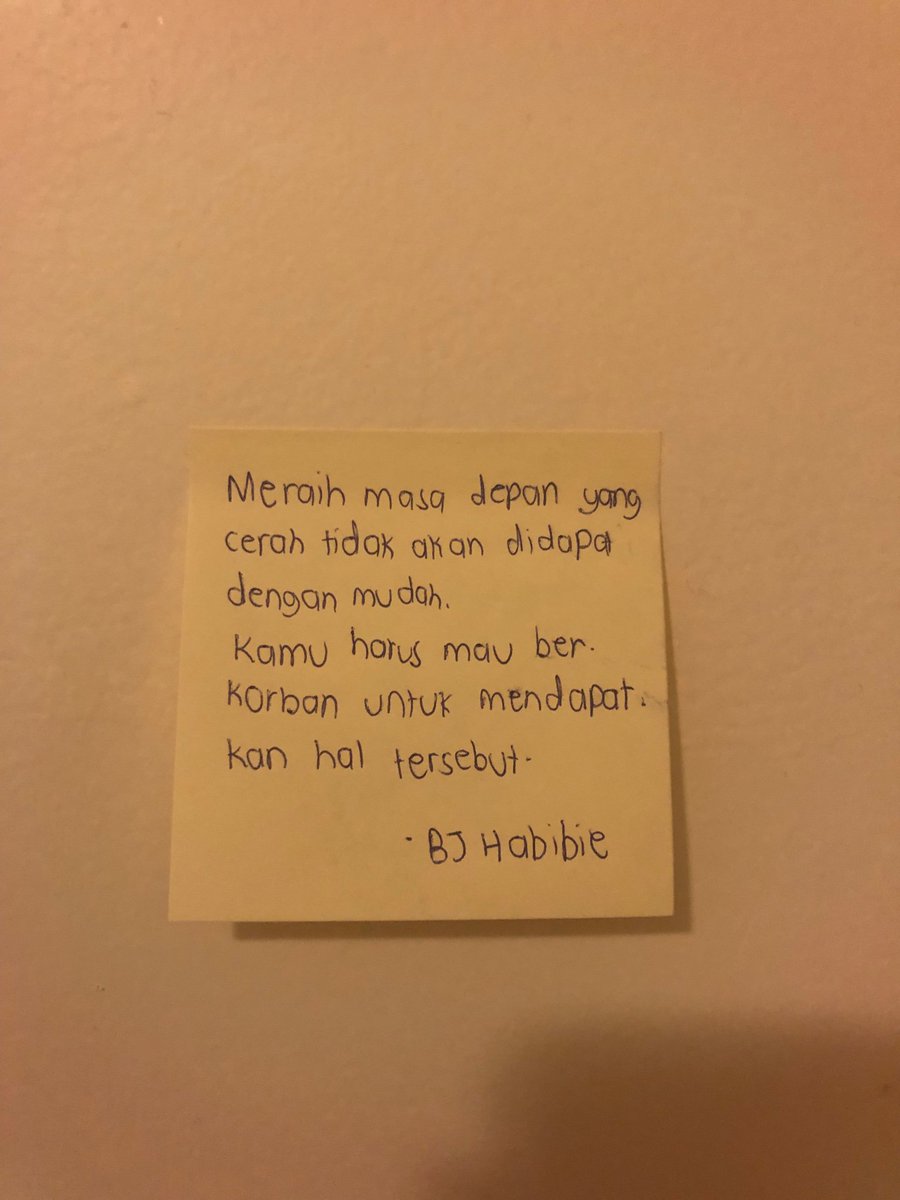 Meraih masa depan yang
cerah tidak akan didapat
dengan mudah.
Kamu harus mau ber-
korban untuk mendapat-
kan hal tersebut.
- BJ Habibie